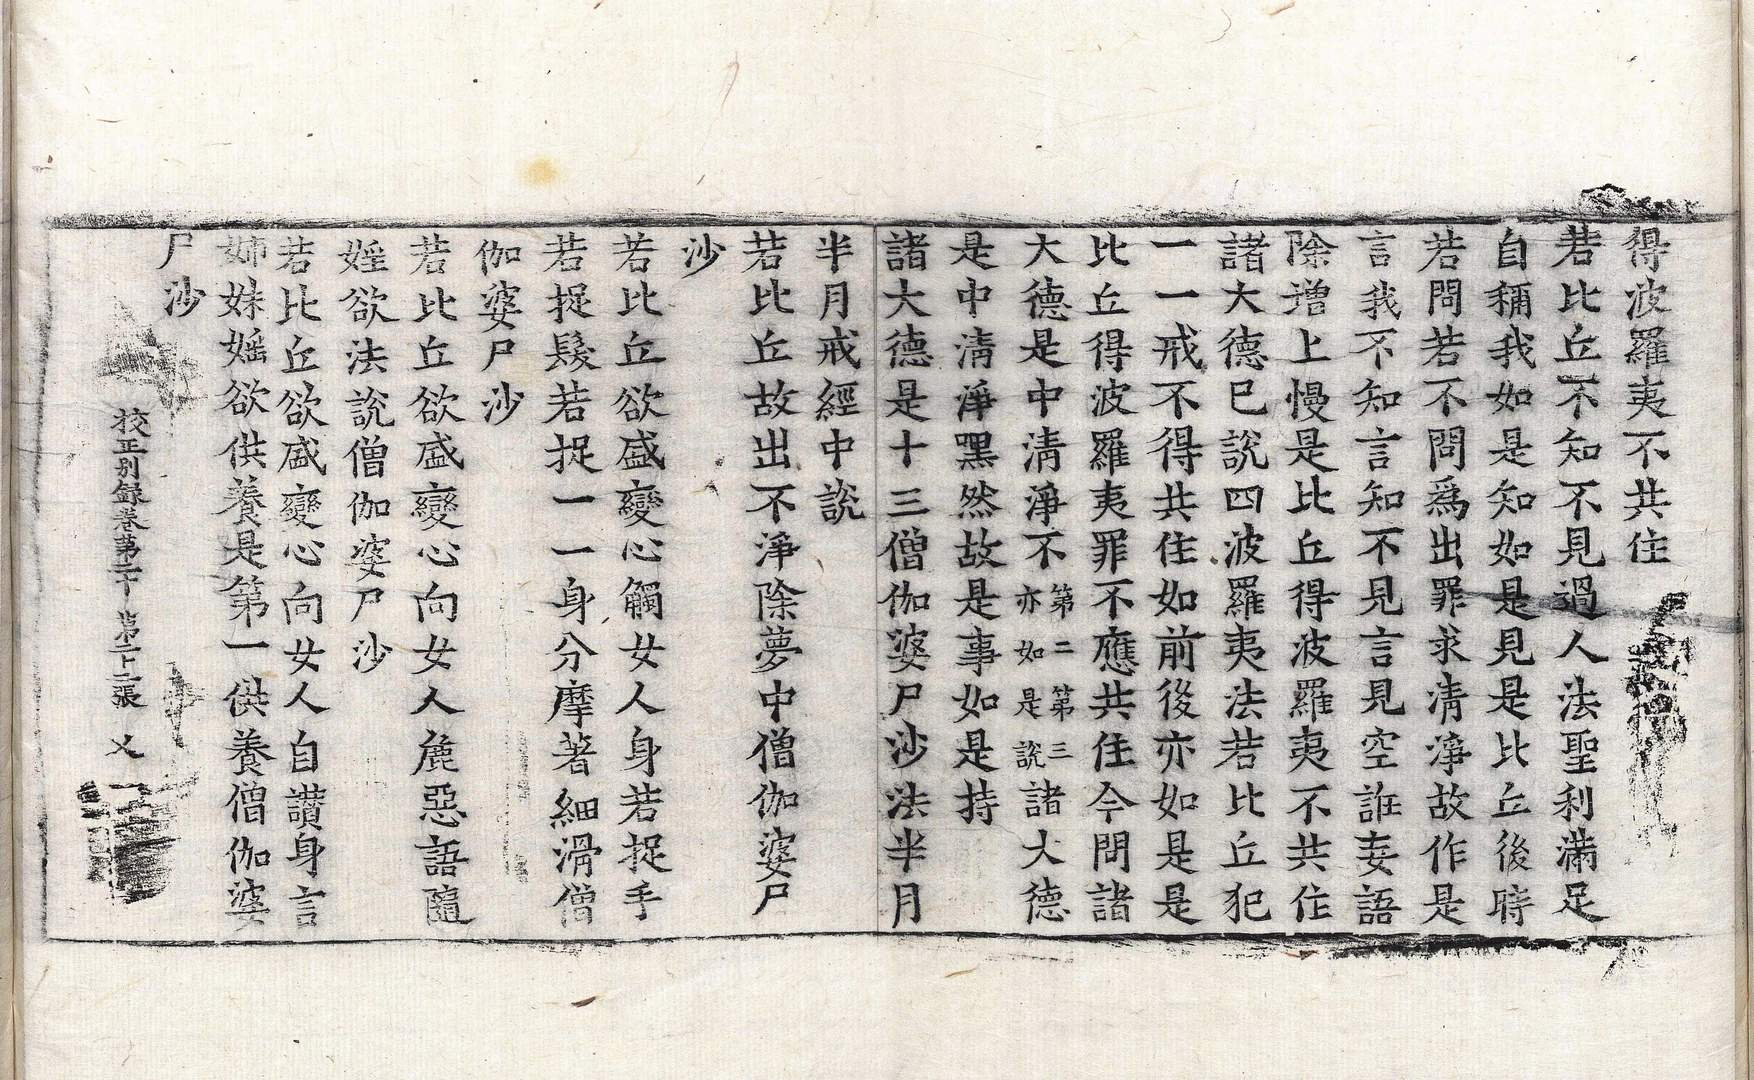 得波羅夷不共住
若比丘不知不見過人法聖利滿足
自稱我如是知如是見是比丘後時
若問若不問爲出罪求清淨故作是
言我不知言知不見言見空誑妄語
除增上慢是比丘得波羅夷不共住
諸大德已說四波羅夷法若比丘犯
一一戒不得共住如前後亦如是是
比丘得波羅夷罪不應共住今問諸
大德是中清淨不第二第三亦如是說諸大德
是中清淨默然故是事如是持
諸大德是十三僧伽婆尸沙法半月
半月戒經中說
若比丘故出不淨除夢中僧伽婆尸
沙
若比丘欲盛變心觸女人身若捉手
若捉髮若捉一一身分摩著細滑僧
伽婆尸沙
若比丘欲盛變心向女人麁惡語隨
婬欲法說僧伽婆尸沙
若比丘欲盛變心向女人自讚身言
姉妹婬欲供養是第一供養僧伽婆
尸沙
校正別錄卷第二十 第二十二張